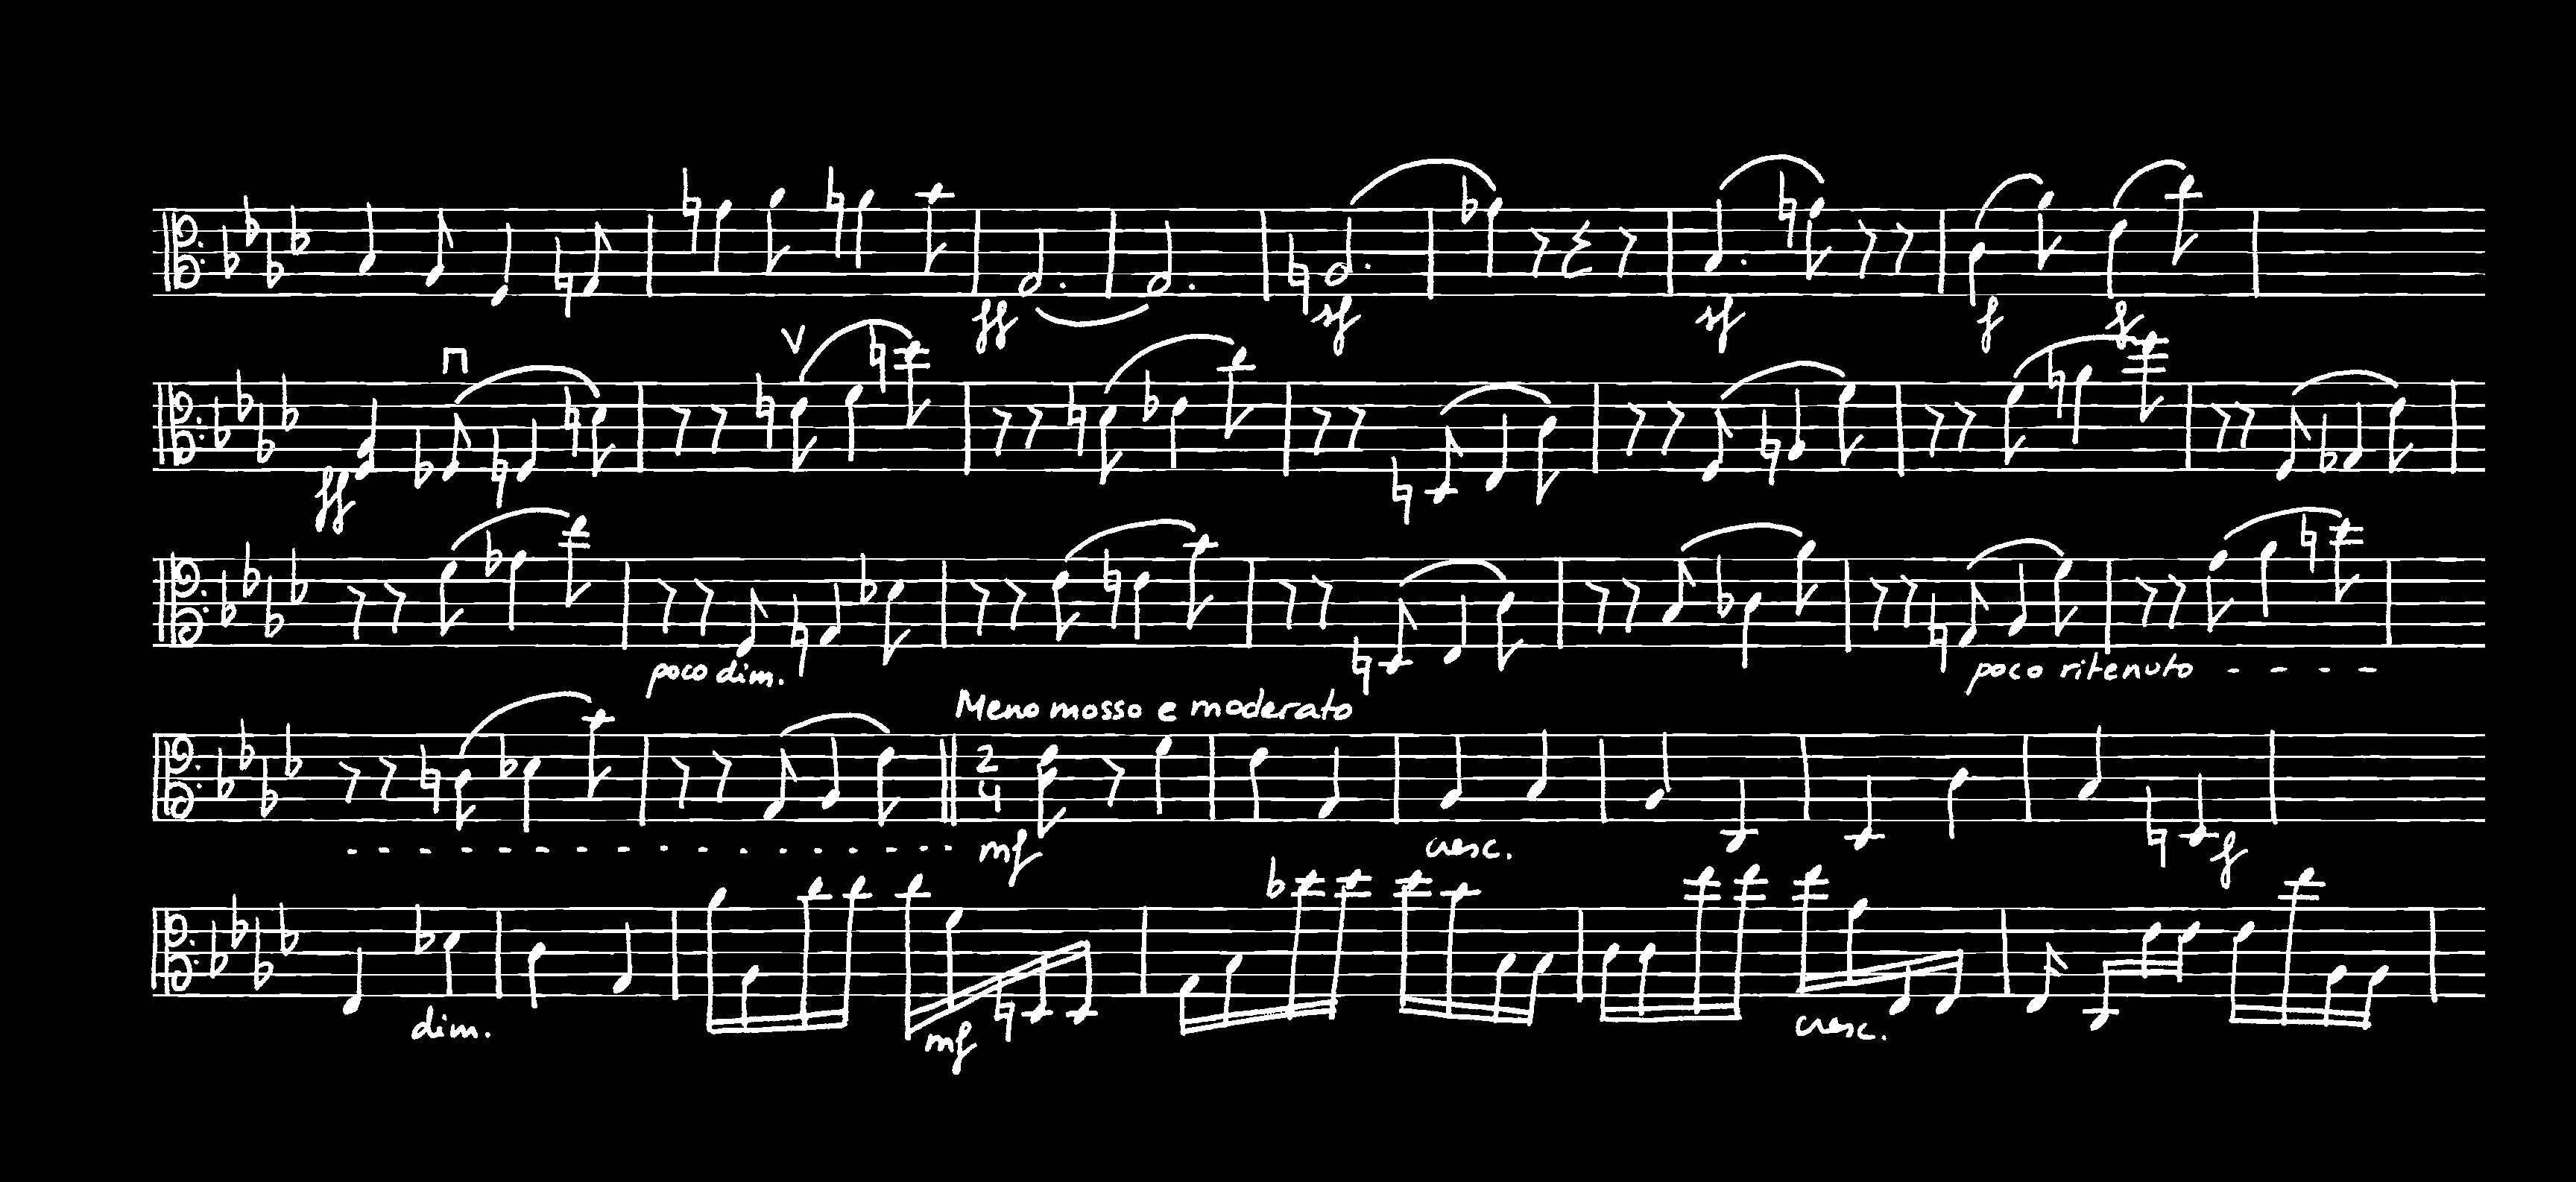 ff sf sf f f
V
ff
poco dim. poco ritenuto - - - -
Meno mosso e moderato
2 4
mf cresc. f
dim. mf cresc.